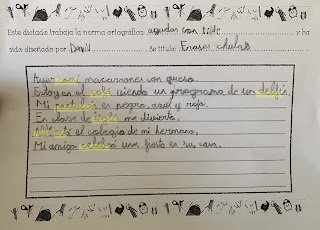 Este dictado trabaja la norma ortográfica: agudas con tilde y ha
sido diseñado por Dani V Se titula: Frases chulas
Ayer comí macarrones con queso.
Estoy en el sofá viendo un programa de un delfín.
Mi pantalón es negro, azul y rojo.
En clase de inglés me divierto.
Allí está el colegio de mi hermano.
Mi amigo celebró una fiesta en su casa.